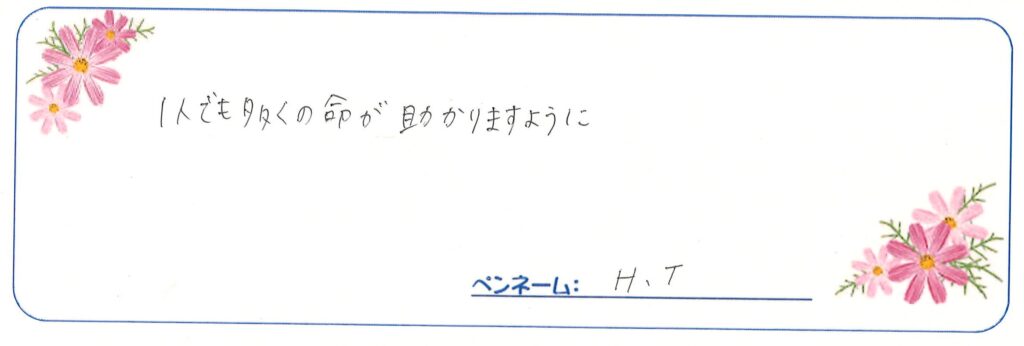 1人でも多くの命が助かりますように
ペンネーム: H、T